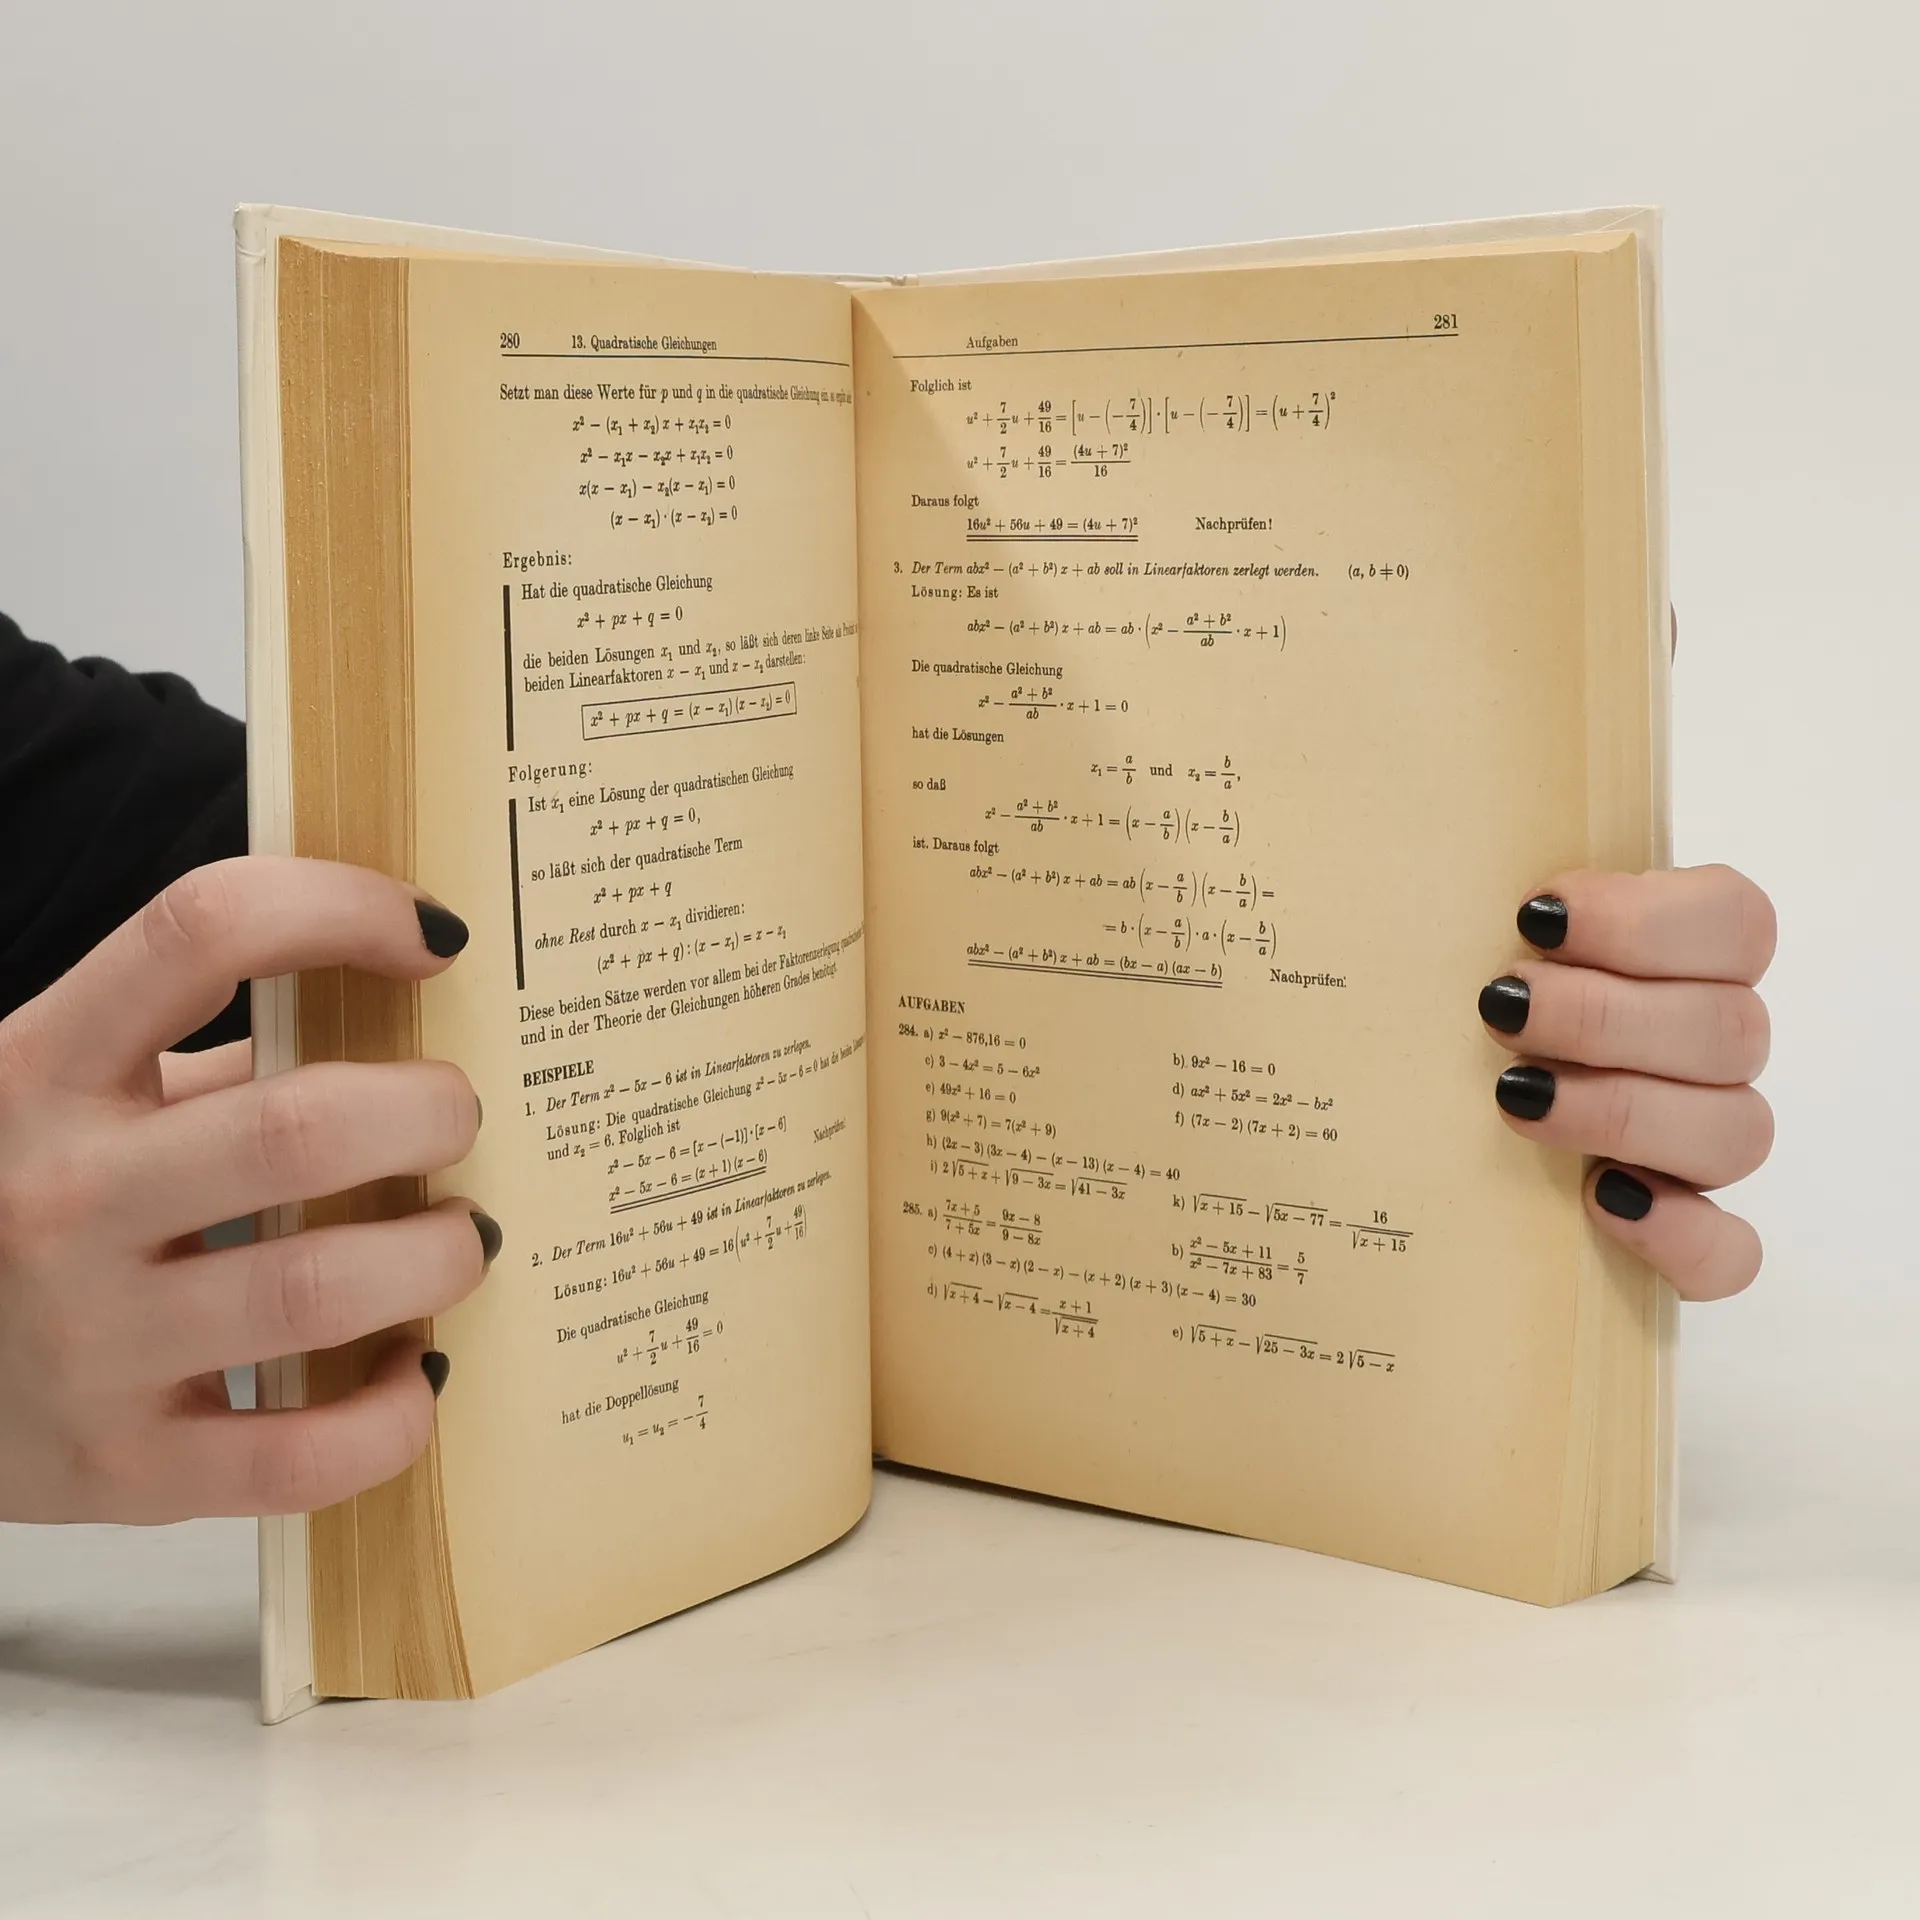 280 13. Quadratische Gleichungen
Setzt man diese Werte für p und q in die quadratische Gleichung ein, so
x² − (x₁ + x₂) x + x₁x₂ = 0
x² − x₁x − x₂x + x₁x₂ = 0
x(x − x₁) − x₂(x − x₁) = 0
(x − x₁) · (x − x₂) = 0
Ergebnis:
Hat die quadratische Gleichung
x² + px + q = 0
die beiden Lösungen x₁ und x₂, so läßt sich deren linke Seite als
beiden Linearfaktoren x − x₁ und x − x₂ darstellen:
x² + px + q = (x − x₁) (x − x₂) = 0
Folgerung:
Ist x₁ eine Lösung der quadratischen Gleichung
x² + px + q = 0,
so läßt sich der quadratische Term
x² + px + q
ohne Rest durch x − x₁ dividieren:
(x² + px + q) : (x − x₁) = x − x₁
Diese beiden Sätze werden vor allem bei der Faktorenzerlegung
und in der Theorie der Gleichungen höheren Grades benötigt.
BEISPIELE
1. Der Term x² − 5x − 6 ist in Linearfaktoren zu zerlegen.
Lösung: Die quadratische Gleichung x² − 5x − 6 = 0 hat die beiden
und x₂ = 6. Folglich ist
x² − 5x − 6 = [x − (−1)] · [x − 6]
x² − 5x − 6 = (x + 1) (x − 6) Nachprüfen!
2. Der Term 16u² + 56u + 49 ist in Linearfaktoren zu zerlegen.
Lösung: 16u² + 56u + 49 = 16 (u² + 7/2 u + 49/16)
Die quadratische Gleichung
u² + 7/2 u + 49/16 = 0
hat die Doppellösung
u₁ = u₂ = − 7/4
Aufgaben 281
Folglich ist
u² + 7/2 u + 49/16 = [u − (− 7/4)] · [u − (− 7/4)] = (u + 7/4)²
u² + 7/2 u + 49/16 = (4u + 7)²/16
Daraus folgt
16u² + 56u + 49 = (4u + 7)² Nachprüfen!
3. Der Term abx² − (a² + b²) x + ab soll in Linearfaktoren zerlegt werden. (a, b ≠ 0)
Lösung: Es ist
abx² − (a² + b²) x + ab = ab · (x² − (a² + b²)/ab · x + 1)
Die quadratische Gleichung
x² − (a² + b²)/ab · x + 1 = 0
hat die Lösungen
x₁ = a/b und x₂ = b/a,
so daß
x² − (a² + b²)/ab · x + 1 = (x − a/b) (x − b/a)
ist. Daraus folgt
abx² − (a² + b²) x + ab = ab (x − a/b) (x − b/a) =
= b · (x − a/b) · a · (x − b/a)
abx² − (a² + b²) x + ab = (bx − a) (ax − b) Nachprüfen!
AUFGABEN
284. a) x² − 876,16 = 0 b) 9x² − 16 = 0
c) 3 − 4x² = 5 − 6x² d) ax² + 5x² = 2x² − bx²
e) 49x² + 16 = 0 f) (7x − 2) (7x + 2) = 60
g) 9(x² + 7) = 7(x² + 9)
h) (2x − 3) (3x − 4) − (x − 13) (x − 4) = 40
i) 2 √(5 + x) + √(9 − 3x) = √(41 − 3x) k) √(x + 15) − √(5x − 77) = 16/√(x + 15)
285. a) (7x + 5)/(7 + 5x) = (9x − 8)/(9 − 8x) b) (x² − 5x + 11)/(x² − 7x + 83) = 5/7
c) (4 + x) (3 − x) (2 − x) − (x + 2) (x + 3) (x − 4) = 30
d) √(x + 4) − √(x − 4) = (x + 1)/√(x + 4) e) √(5 + x) − √(25 − 3x) = 2 √(5 − x)